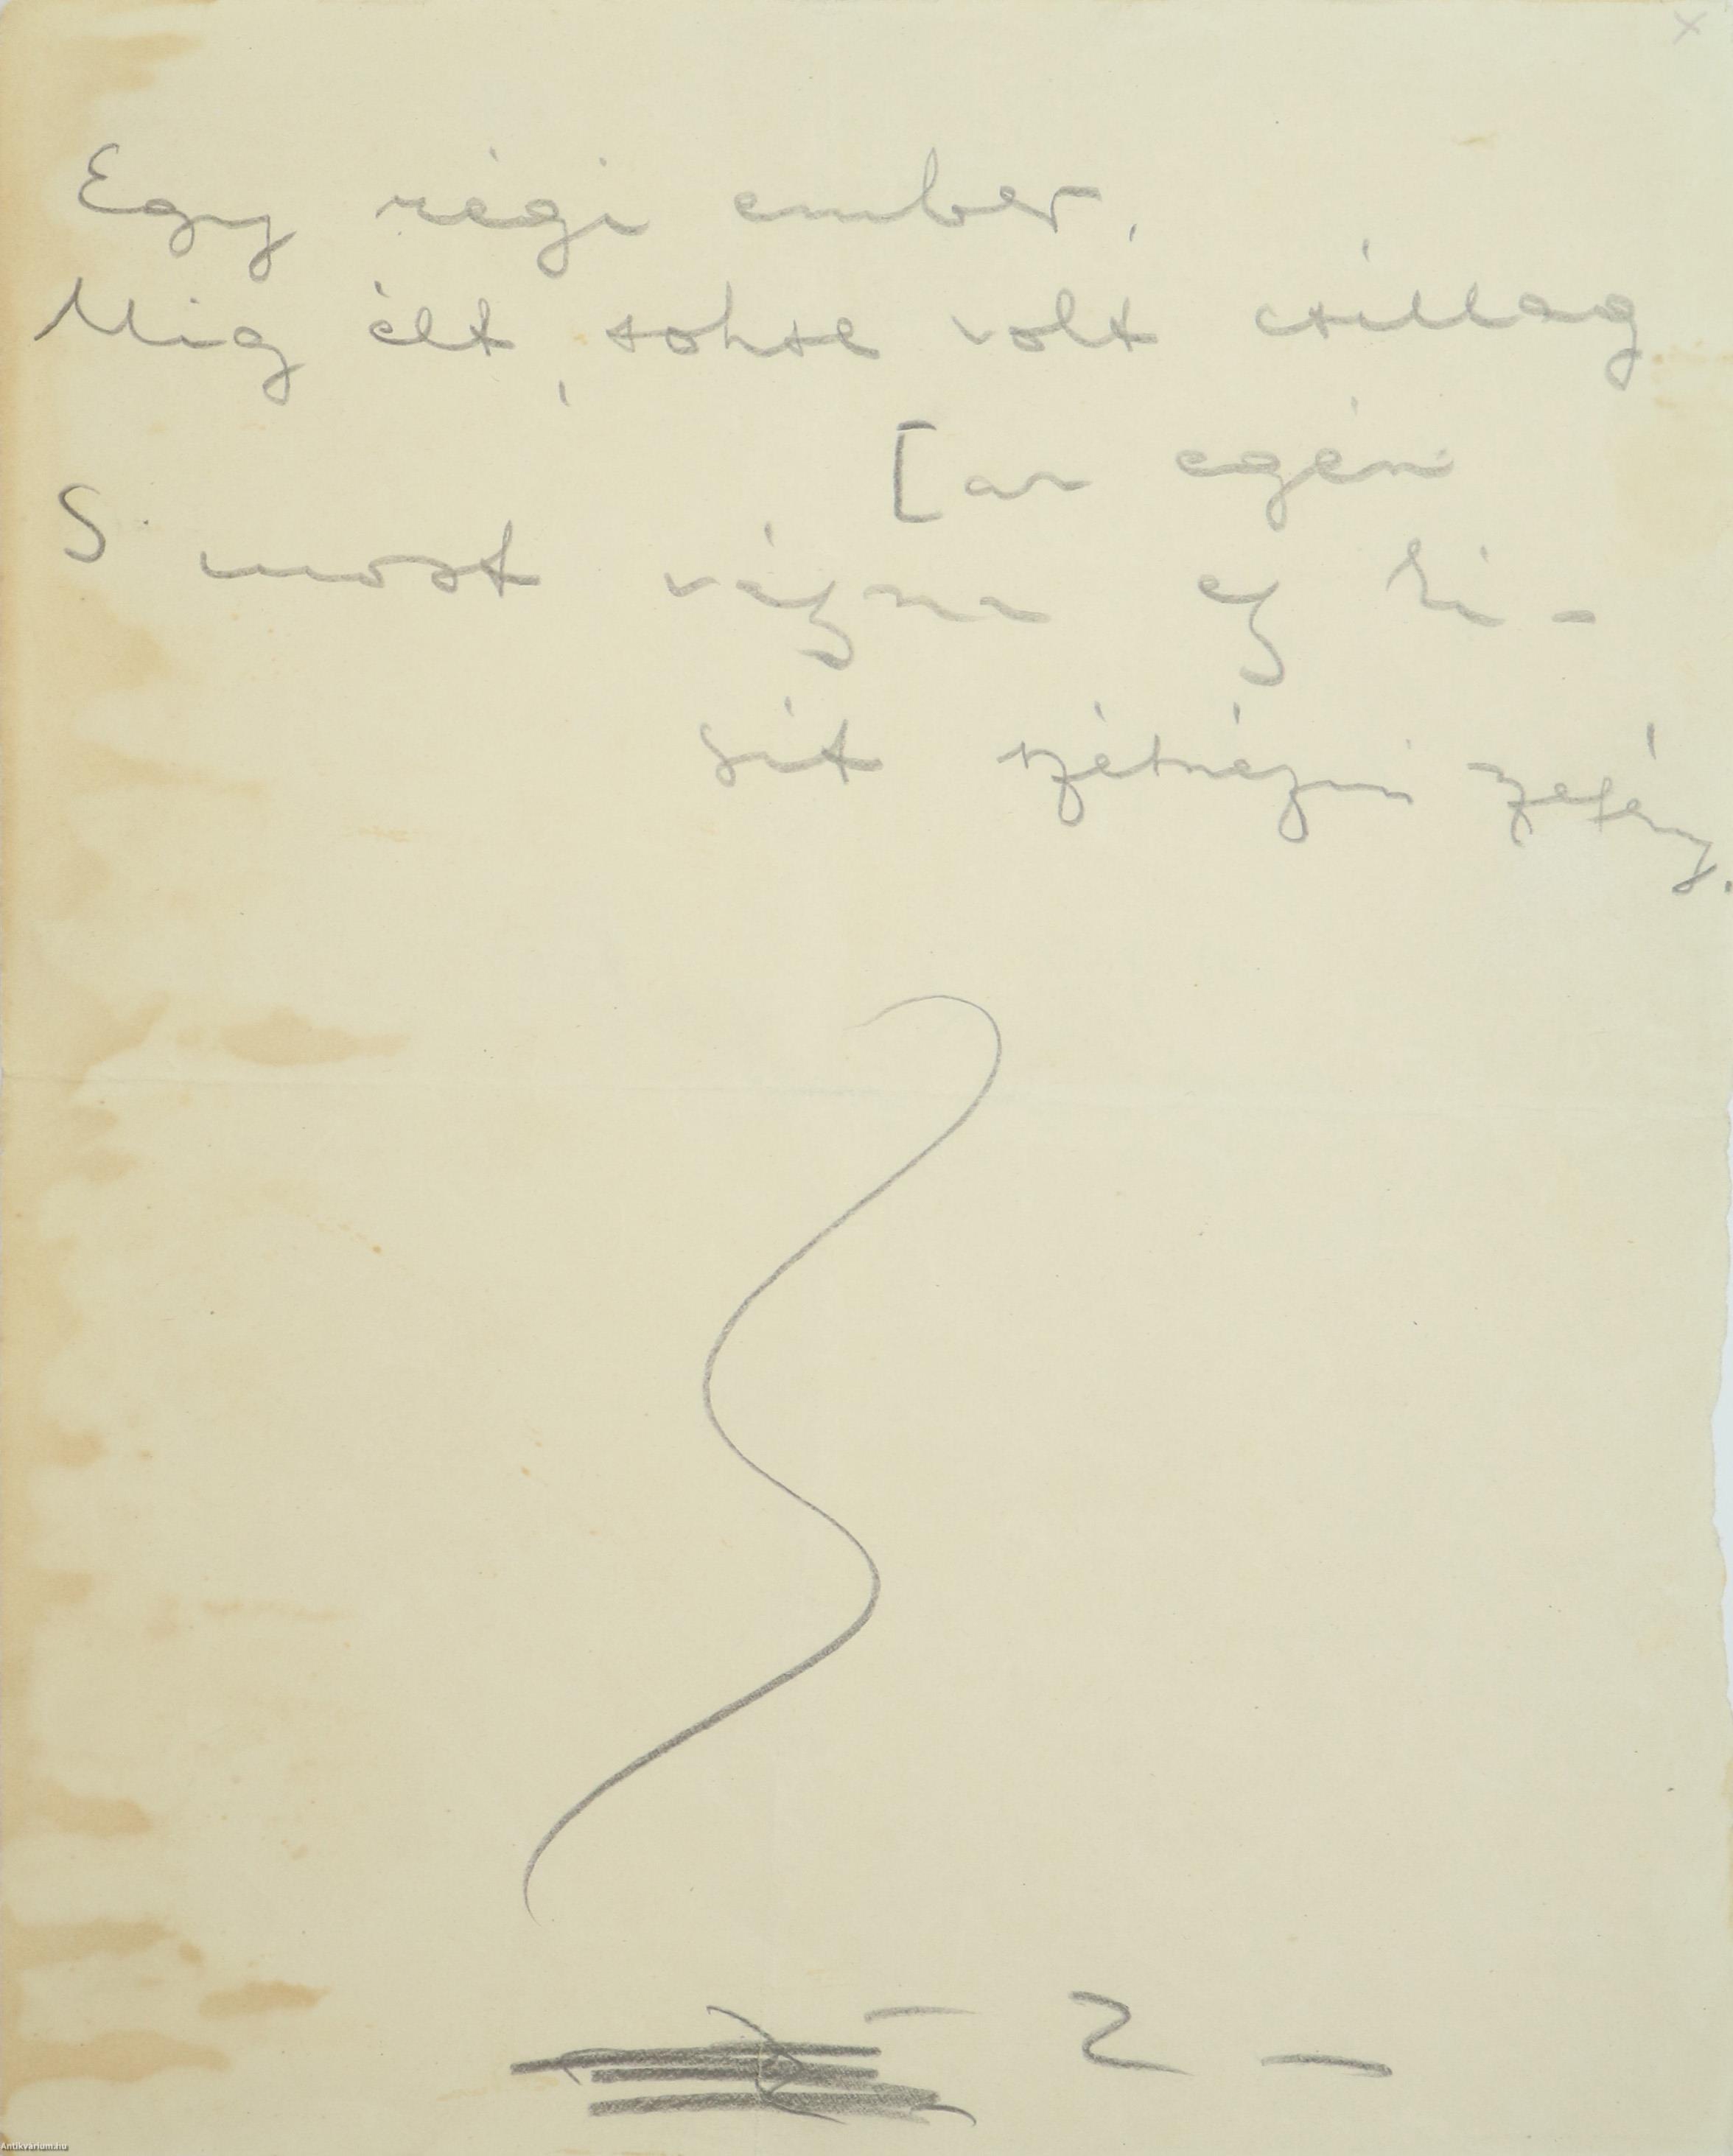 x
Egy régi ember,
Mig élt, sohse volt csillag
[az egén
S most vágyna egy ki-
csit szétnézni szegény.
— 2 —
Antikvarium.hu